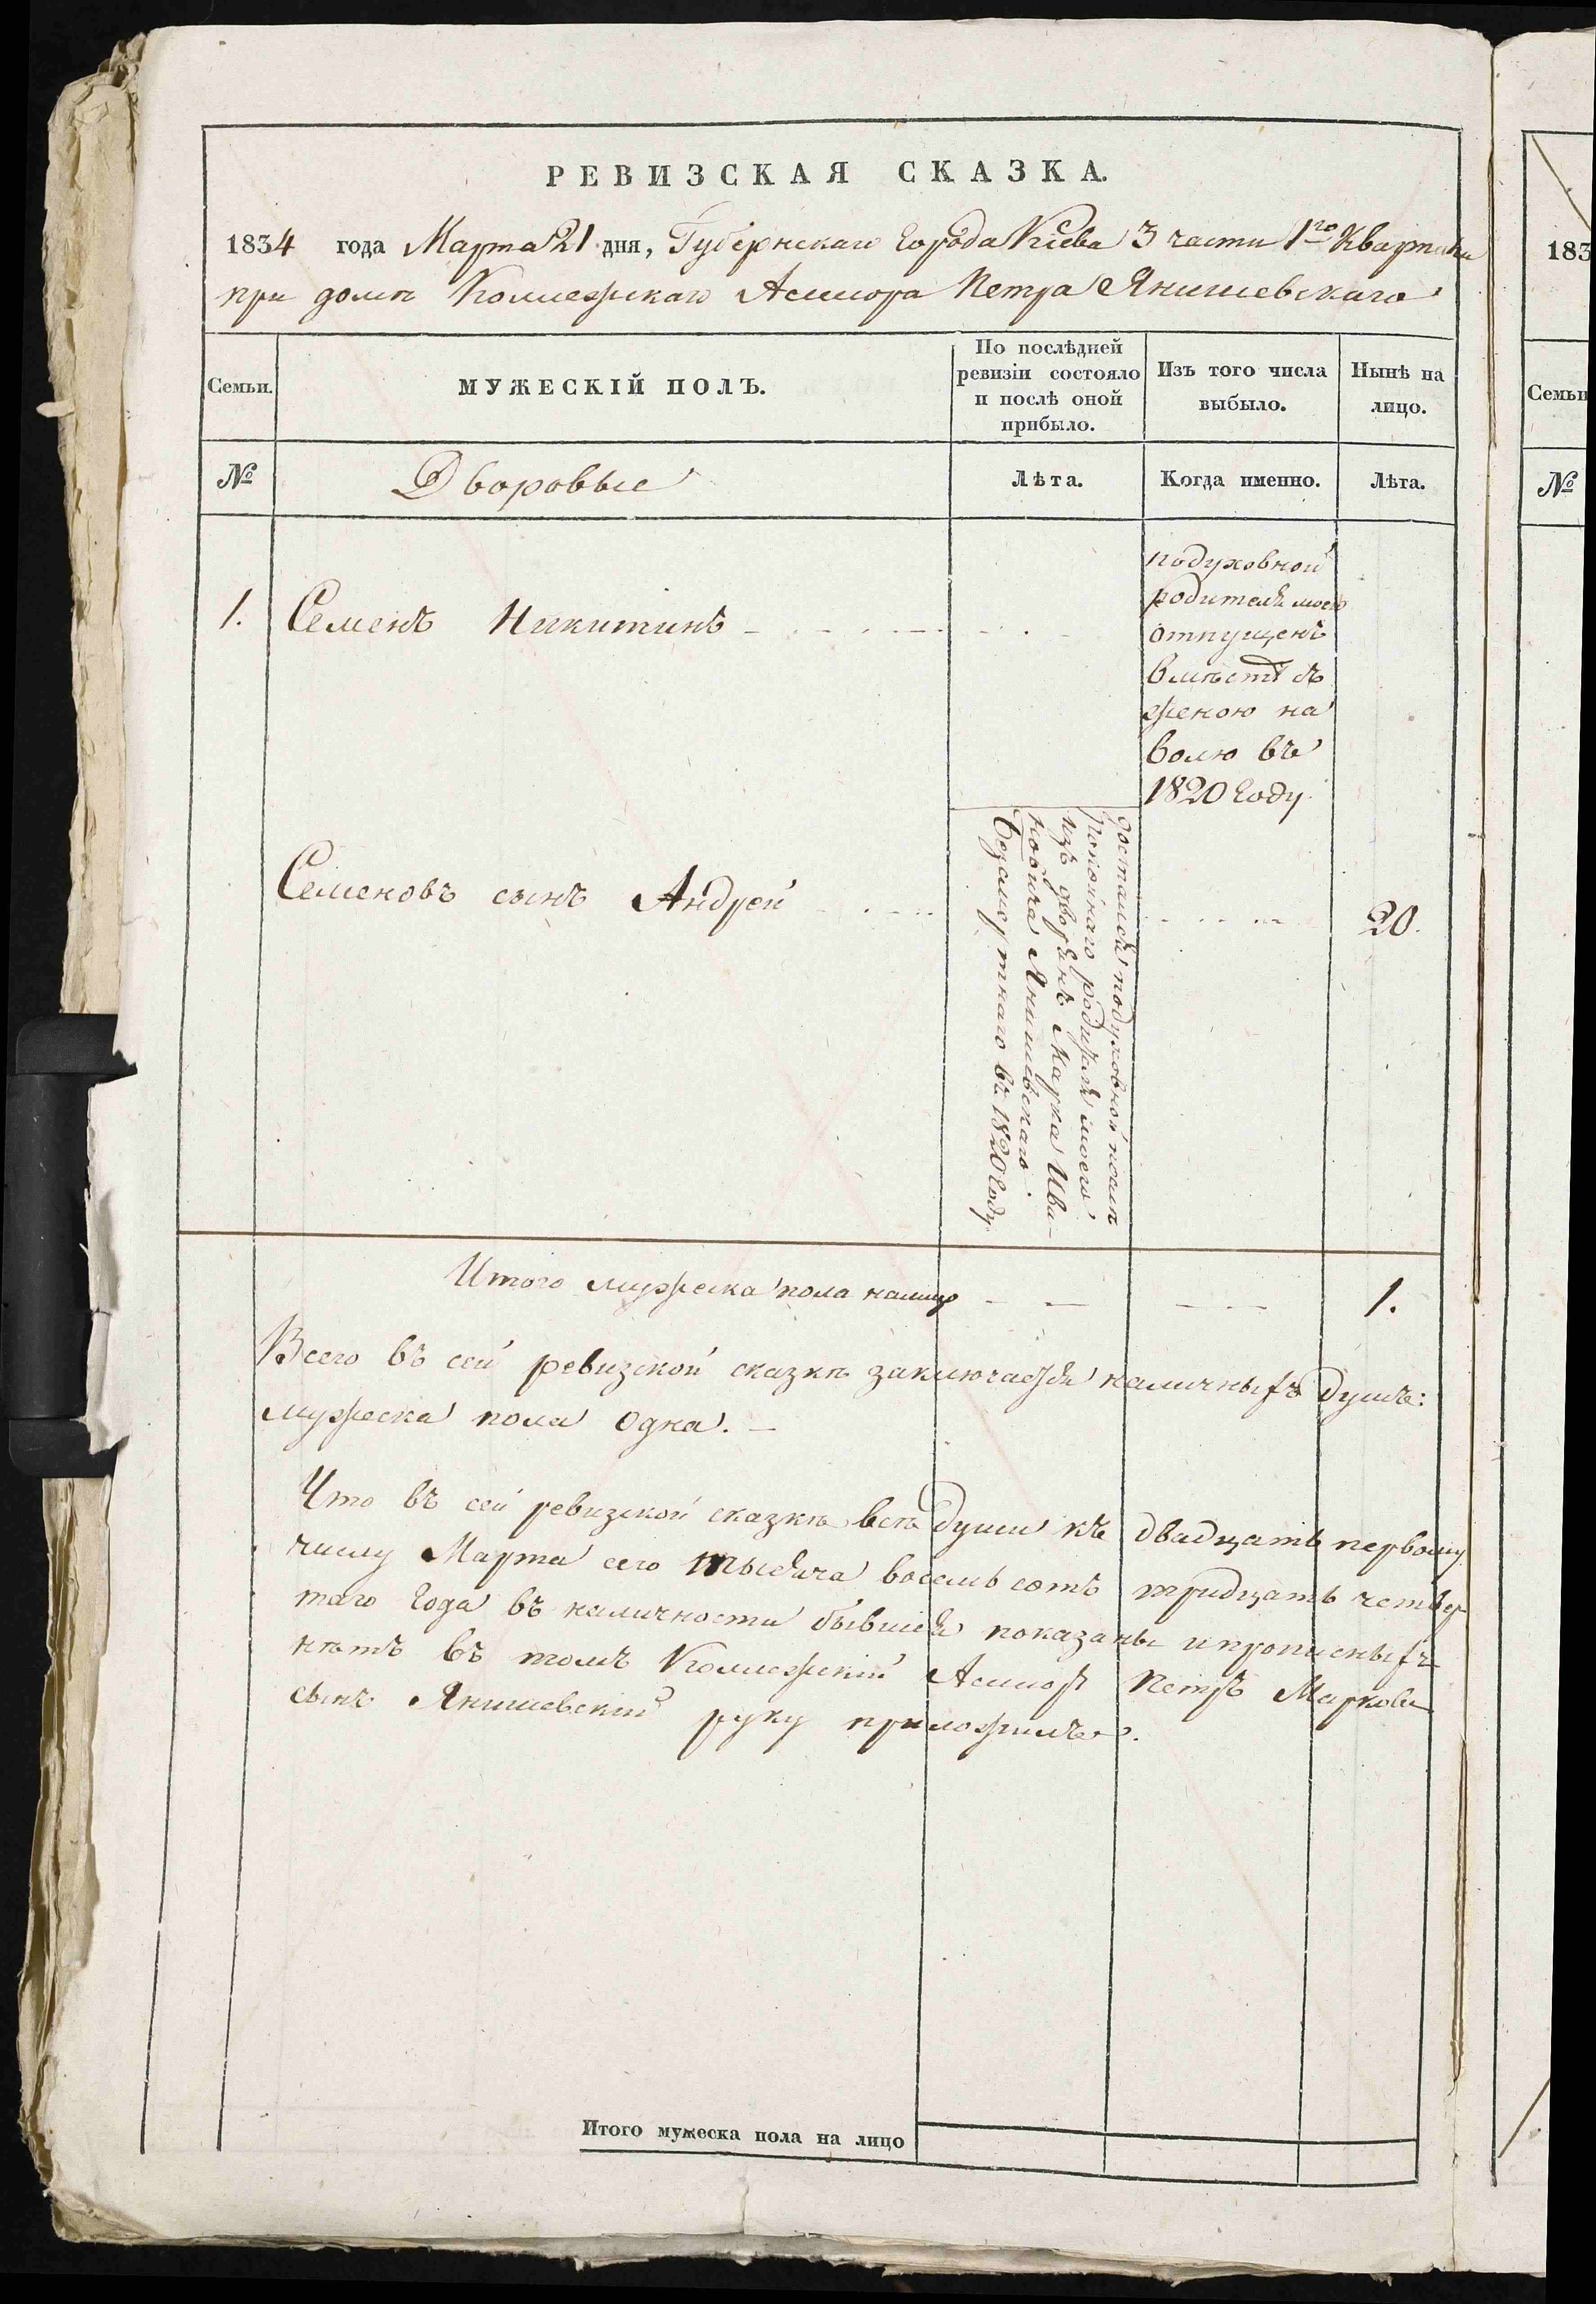 РЕВИЗСКАЯ СКАЗКА.
1834 года Марта 21 дня, Губернскаго города Кіева 3 части 1го Квартала
при домѣ Коллежскаго Асессора Петра Янишевскаго
Семьи.
МУЖЕСКІЙ ПОЛЪ.
По послѣдней
ревизіи состояло
и послѣ оной
прибыло.
Изъ того числа
выбыло.
Нынѣ на
лицо.
№
Дворовые
Лѣта.
Когда именно.
Лѣта.
1. Семенъ Никитинъ
подуховной
родителя моего
отпущенъ
вмѣстѣ съ
женою на
волю въ
1820 году
Семеновъ сынъ Андрей
достался подуховной послѣ
покойнаго родителя моего
изъ дворянъ Марка Ива-
новича Янишевскаго
въ 1820 году
20.
Итого мужеска пола налицо 1.
Всего въ сей ревизской сказкѣ заключается наличныхъ душъ:
мужеска пола одна. —
Что въ сей ревизской сказкѣ всѣ души къ двадцать первому
числу Марта сего тысяча восемь сотъ тридцать четвер
таго года въ наличности бывшія показаны и прописныхъ
нѣтъ въ томъ Коллежскій Асессоръ Петръ Марковъ
сынъ Янишевскій руку приложилъ.
Итого мужеска пола на лицо
183
Семьи
№